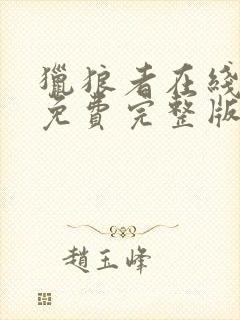 獵狼者在綫
免費完整版
趙玉峰